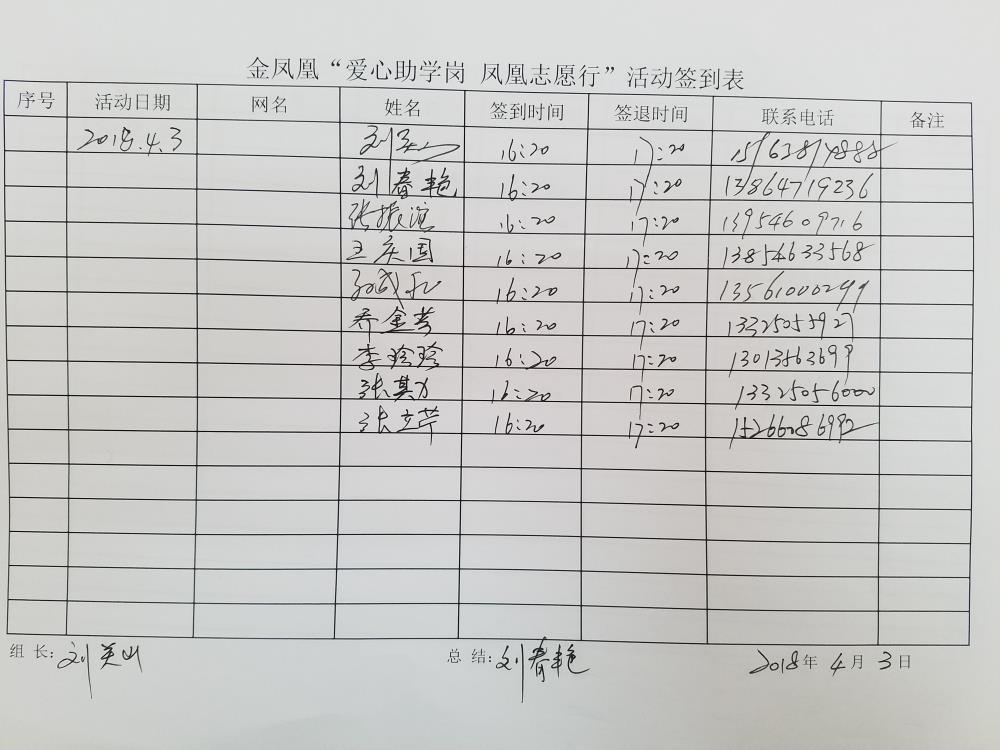 金凤凰“爱心助学岗 凤凰志愿行”活动签到表
序号 活动日期 网名 姓名 签到时间 签退时间 联系电话 备注
2018.4.3 刘英山 16:20 17:20 15163814888
刘春艳 16:20 17:20 13864719236
张振 16:20 17:20 13954609716
王庆国 16:20 17:20 13854633568
16:20 17:20 13561000299
乔金 16:20 17:20 13325055927
李玲玲 16:20 17:20 13013563699
张其力 16:20 17:20 13325056000
张立芹 16:20 17:20 15266086992
组 长: 刘英山 总 结: 刘春艳 2018年 4月 3日